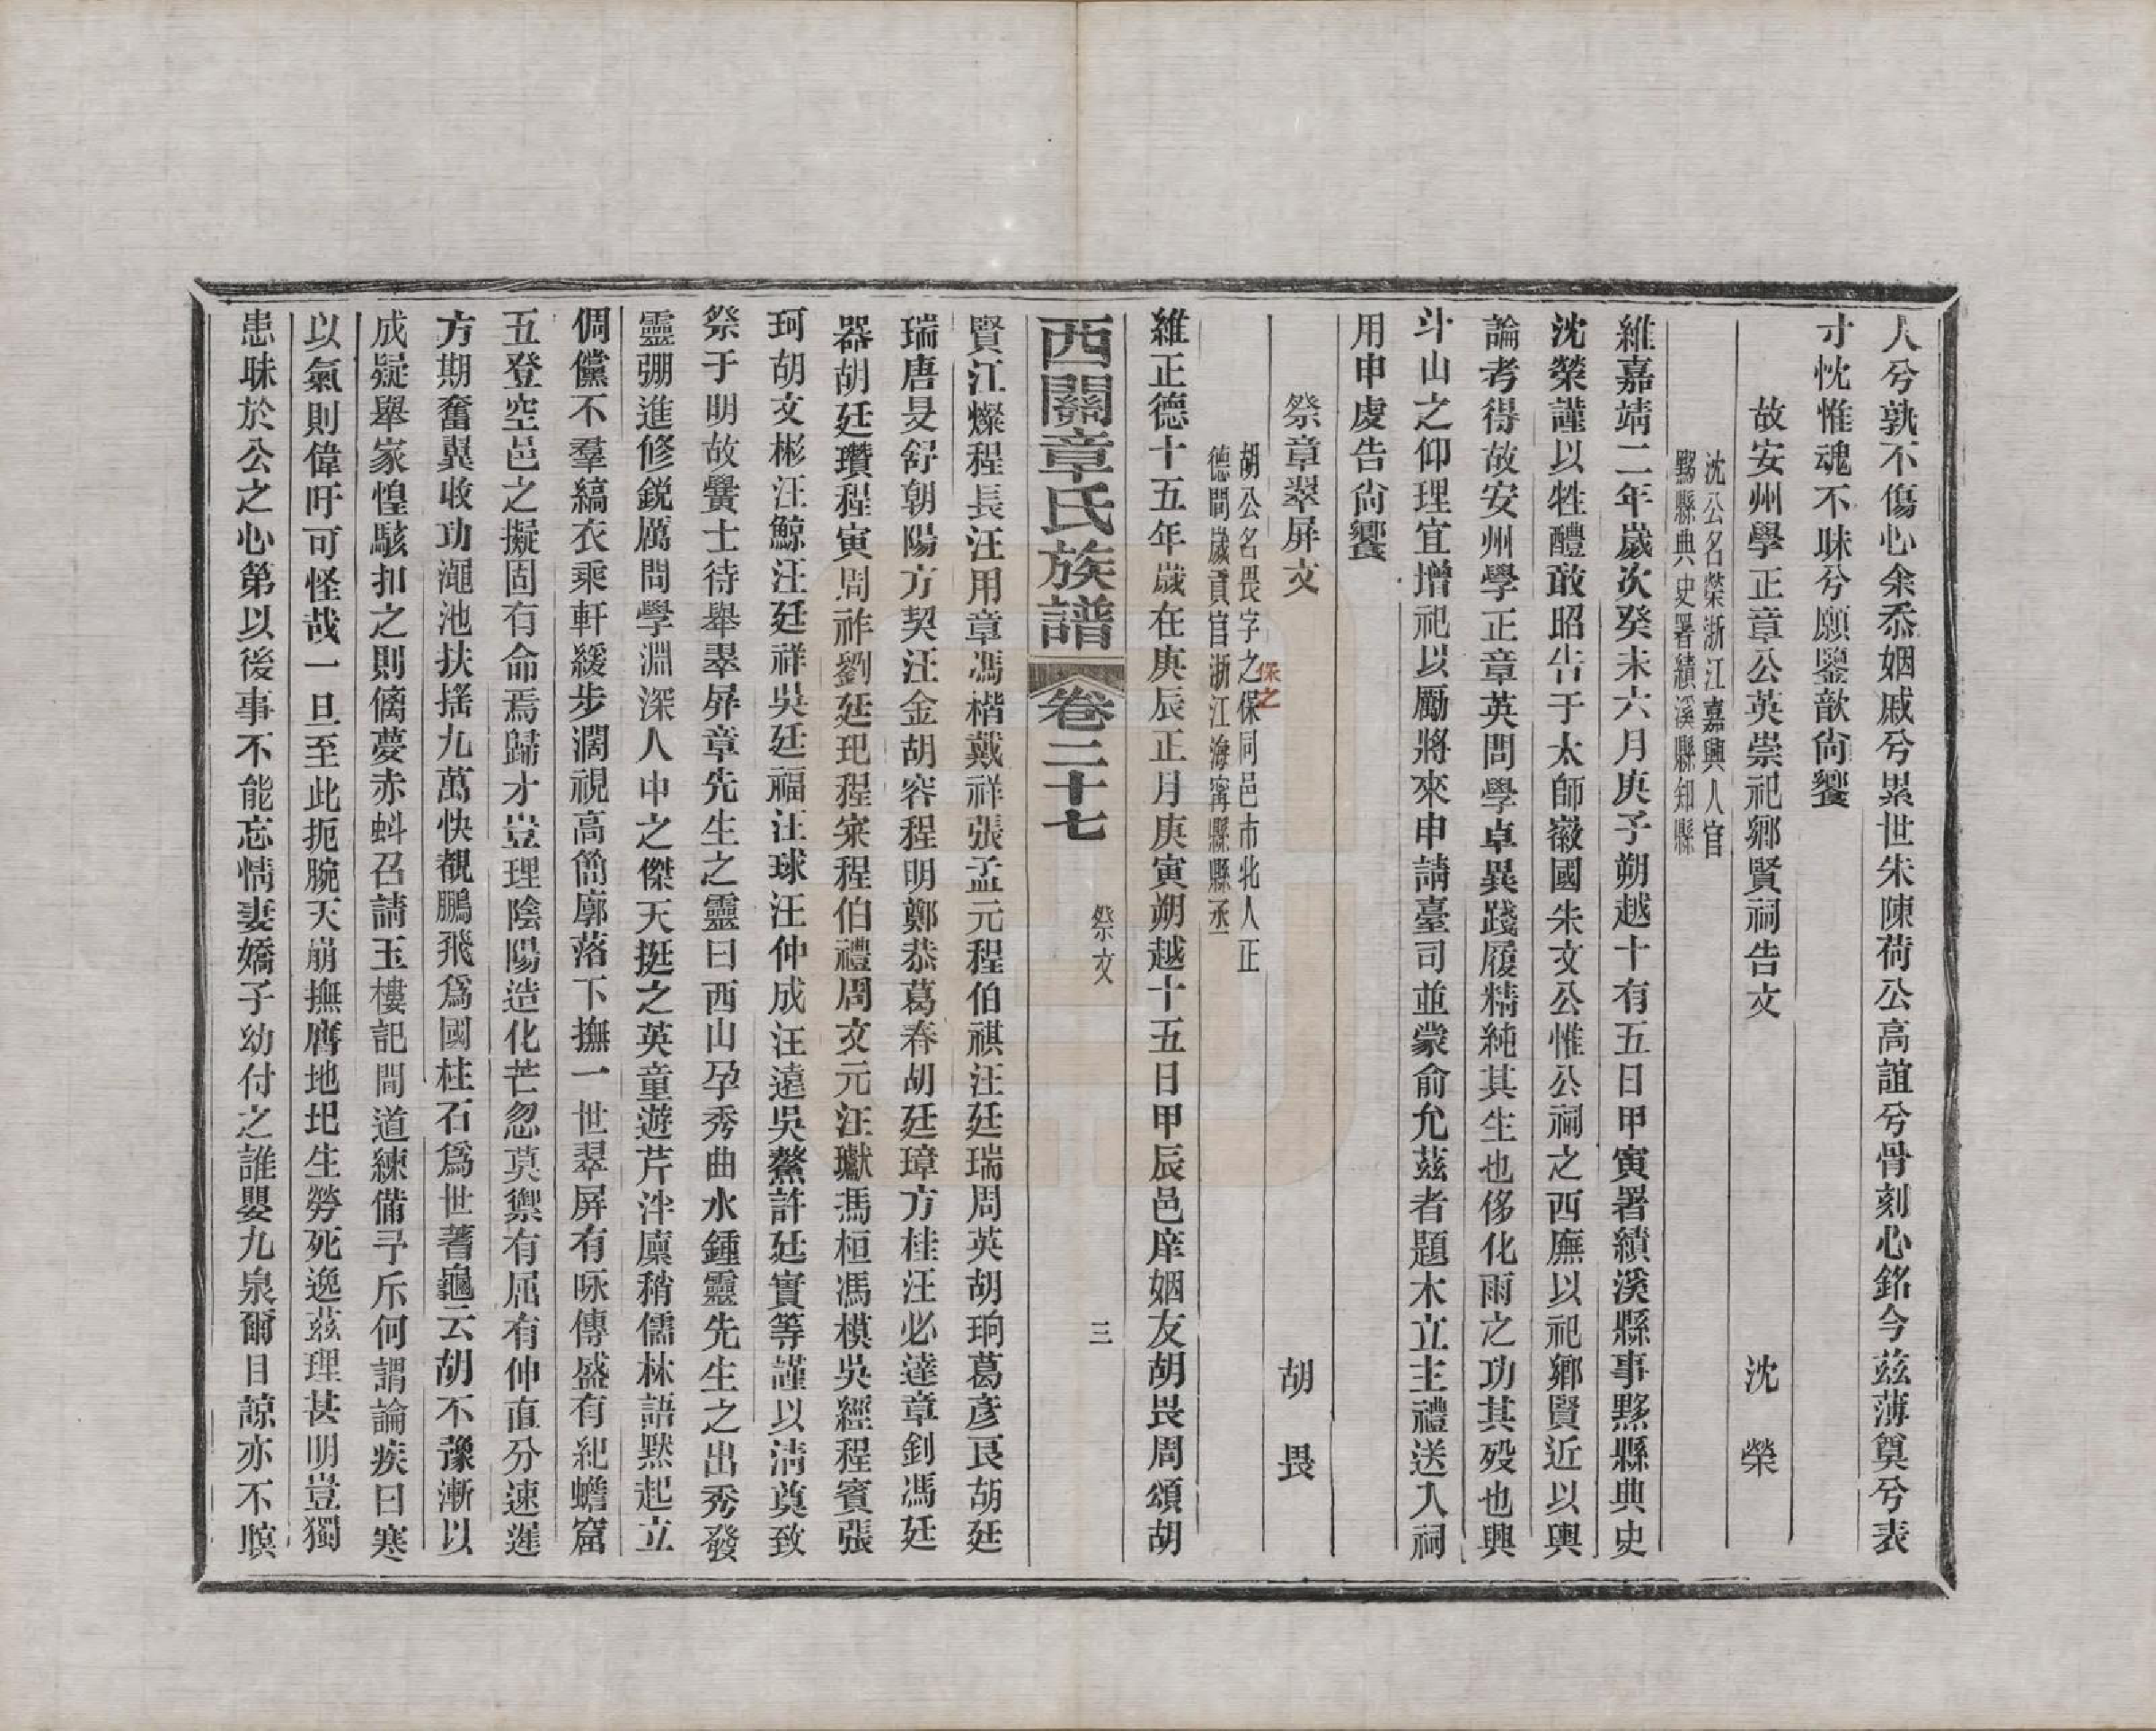 人兮孰不傷心余忝姻戚兮累世朱陳荷公高誼兮骨刻心銘今茲薄奠兮表
寸忱惟魂不昧兮願鑒歆尙饗
故安州學正章公英崇祀鄕賢祠告文　沈榮
沈公名榮浙江嘉興人官
黟縣典史署績溪縣知縣
維嘉靖二年歲次癸未六月庚子朔越十有五日甲寅署績溪縣事黟縣典史
沈榮謹以牲醴敢昭告于太師徽國朱文公惟公祠之西廡以祀鄕賢近以輿
論考得故安州學正章英問學卓異踐履精純其生也侈化雨之功其殁也興
斗山之仰理宜增祀以勵將來申請臺司並蒙俞允茲者題木立主禮送入祠
用申虔告尙饗
祭章翠屏文　胡畏
胡公名畏字之保同邑市北人正
保之
德間歲貢官浙江海寧縣縣丞
維正德十五年歲在庚辰正月庚寅朔越十五日甲辰邑庠姻友胡畏周頌胡
西關章氏族譜　卷二十七　祭文　三
賢江燦程長汪用章馮楷戴祥張孟元程伯祺汪廷瑞周英胡珦葛彥良胡廷
瑞唐旻舒朝陽方契汪金胡容程明鄭恭葛春胡廷璋方桂汪必達章釗馮廷
器胡廷瓚程寅周祚劉廷玘程寀程伯禮周文元汪瓛馮桓馮模吳經程賓張
珂胡文彬汪鯨汪廷祥吳廷福汪球汪仲成汪遠吳鰲許廷實等謹以淸奠致
祭于明故黌士待舉翠屏章先生之靈曰西山孕秀曲水鍾靈先生之出秀發
靈弸進修銳厲問學淵深人中之傑天挺之英童遊芹泮廩稍儒林語默起立
倜儻不羣縞衣乘軒緩步濶視高簡廓落下撫一世翠屏有咏傳盛有紀蟾窟
五登空邑之擬固有命焉歸才豈理陰陽造化芒忽莫禦有屈有伸直分速遲
方期奮翼收功澠池扶搖九萬快覩鵬飛爲國柱石爲世蓍龜云胡不豫漸以
成疑舉家惶駭扣之則僪夢赤蚪召請玉樓記間道練備予斥何謂論疾曰寒
以氣則偉吁可怪哉一旦至此扼腕天崩撫膺地圯生勞死逸茲理甚明豈獨
患昧於公之心第以後事不能忘情妻嬌子幼付之誰嬰九泉爾目諒亦不瞑